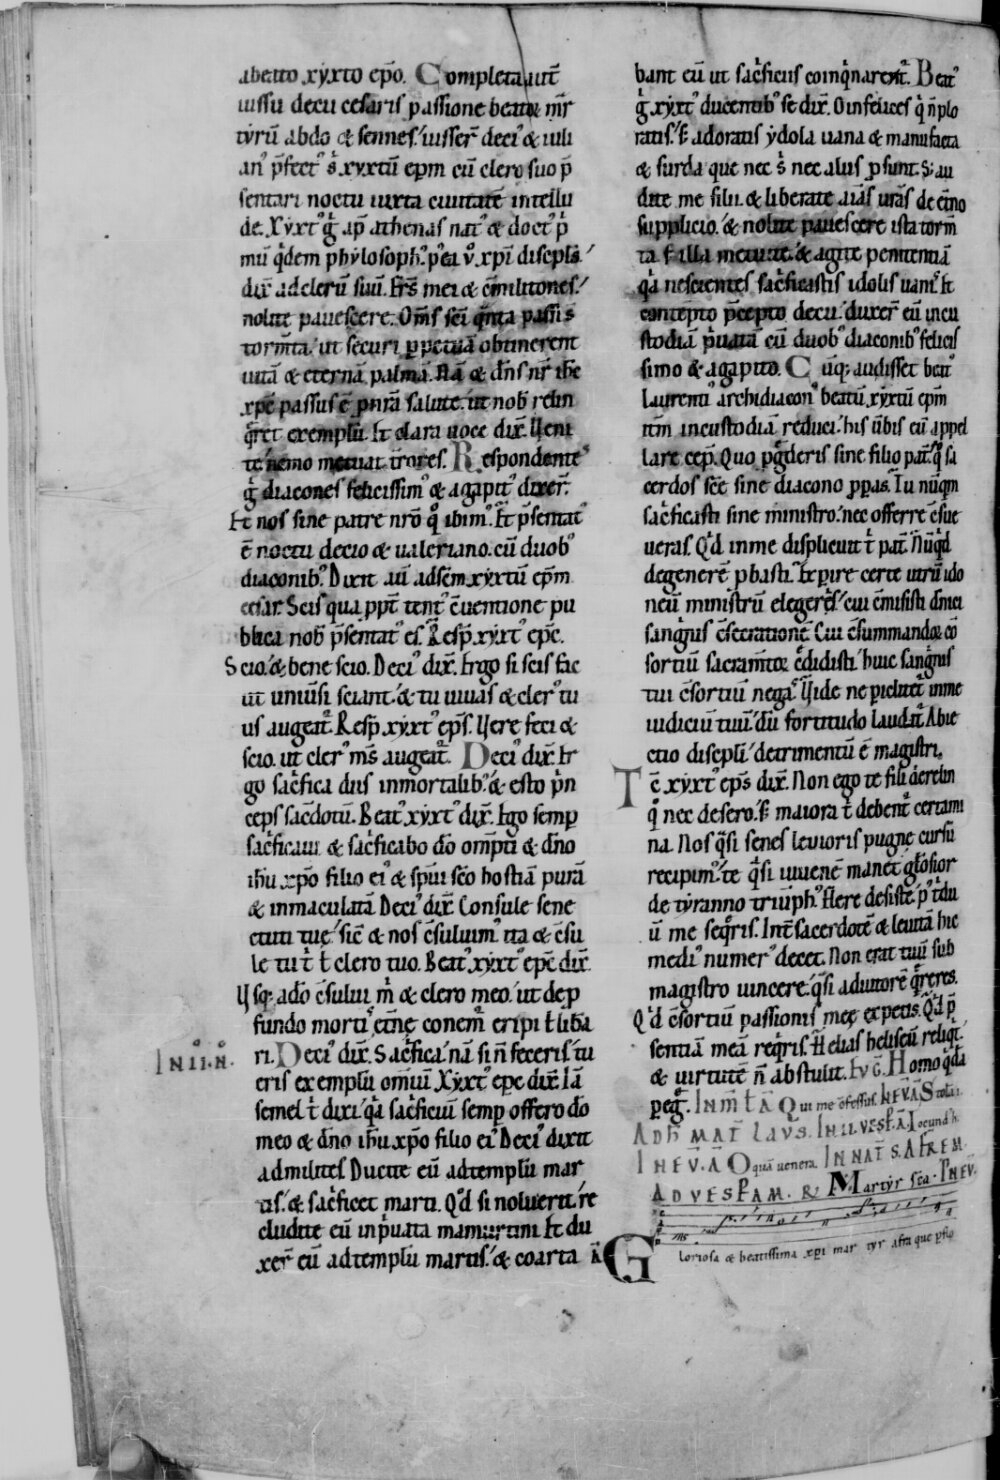 abeato xyxto ep̄o. Completa aut̄
iussu decii cesaris passione beatoꝝ m̄r
tyrū abdo & sennes. iusser̄ deci⁹ & iuli
an⁹ p̄fect⁹ s̄ xyxtū ep̄m cū clero suo p̄
sentari noctu iuxta ciuitatē intellu
de. Xyxt⁹ g̊ ap̄ athenas nat⁹ & doct⁹ p̊
mū q̊dem phylosoph⁹. p⁹ea v̊ xp̄i discipl⁹.
dix̄ ad clerū suū. Fr̄s mei & c̄militones.
nolite pauescere. Om̄s sc̄i q̊nta passi s̄
torm̄ta. ut securi p̱petuā obtinerent
uitā & eternā palmā. Nā & dn̄s nr̄ ih̄c
xp̄c passus ē p̱ nr̄ā salute. ut nob̄ relin
q̊ret exemplū. Et clara uoce dix̄. Veni
te. nemo metuat t̄rores. Respondente⁹
g̊ diacones felicissim⁹ & agapit⁹ dixer̄.
Et nos sine patre nr̄o q̊ ibim⁹. Et p̄sentat⁹
ē noctu decio & ualeriano. cū duob⁹
diaconib⁹. Dixit aū ad sc̄m xyxtū ep̄m
cesar. Scis qua pp̄t tent⁹ c̄uentione pu
blica nob̄ p̄sentat⁹ es. Resp̄ xyxt⁹ ep̄c.
Scio. & bene scio. Deci⁹ dix̄. Ergo si scis fac
ut uniu̇si sciant. & tu uiuas & cler⁹ tu
us augeat̄. Resp̄ xyxt⁹ ep̄s. Vere feci &
scio. ut cler⁹ m̄s augeat̄. Deci⁹ dix̄. Er
go sac̊fica diis inmortalib⁹. & esto p̊n
ceps sac̄dotū. Beat⁹ xyxt⁹ dix̄. Ego semp̱
sac̊ficaui & sac̊ficabo dō omp̄ti & dn̄o
ih̄u xp̄o filio ei⁹ & sp̄ui sc̄o hostiā purā
& inmaculatā. Deci⁹ dix̄. Consule sene
ctuti tuę. sic̄ & nos c̄suluim⁹ ita & c̄su
le tu t̊ & clero tuo. Beat⁹ xyxt⁹ ep̄c dix̄.
Vsq; adō c̄sului m̊ & clero meo. ut de p̱
fundo morti⁹ et̄nę conem̄ eripi & liba
ri. Deci⁹ dix̄. Sac̊fica. nā si n̄ feceris. tu
eris exemplū om̄iū. Xyxt⁹ ep̄c dix̄. Iā
semel t̊ dixi. q̊a sac̊ficiū semp̱ offero dō
meo & dn̄o ih̄u xp̄o filio ei⁹. Deci⁹ dixit
ad milites. Ducite eū ad templū mar
tis. & sac̊ficet marti. Q̊d si noluerit. re
cludite eū in p̊uata mamurtini. Et du
xer̄ eū ad templū martis. & coarta
IN II. N̊.
bant eū ut sac̊ficiis coinq̊naret̄. Beat⁹
g̊ xyxt⁹ ducentib⁹ se dix̄. O infelices q̊ n̄ plo
ratis. & adoratis ydola uana & manu facta
& surda que nec s̊ nec aliis p̱sunt. S; au
dite me filii. & liberate aīas ur̄as de et̄no
supplicio. & nolite pauescere ista torm̄
ta & illa metuite. & agite penitentiā
q̊a nescientes sac̊ficastis idolis uanis. Et
contepto p̄cepto decii. duxer̄ eū in cu
stodiā p̊uatā cū duob⁹ diaconib⁹ felicis
simo & agapito. Cūq; audisset beat⁹
laurenti⁹ archidiacon⁹ beatū xyxtū ep̄m
itm̄ in custodiā reduci. his u̇bis eū appel
lare cep̄. Quo p̱g̊deris sine filio pat̄. q̊ sa
cerdos sc̄e sine diacono p̱pas. Tu nūq̊m
sac̊ficasti sine ministro. nec offerre c̄sue
ueras. Q̊d in me displicuit t̊ pat̄. Nūq̊d
degenerē p̱basti. Expire certe utrū ido
neū ministrū elegeres. cui c̄misisti dn̄ici
sang̊nis c̄secrationē. Cui c̄summandoꝝ cō
sortiū sacram̄toꝝ c̄didisti. huic sang̊nis
tui c̄sortiū negas. Vide ne piclitet̄ in me
iudiciū tuū. dū fortitudo laudat̄. Abie
ctio discipli. detrimentū ē magistri.
Tc̄ xyxt⁹ ep̄s dix̄. Non ego te fili derelin
q̊ nec desero. & maiora t̊ debent̄ certami
na. Nos q̊si senes leuioris pugnę cursū
recipim⁹. te q̊si iuuenē manet gl̄osior
de tyranno triūph⁹. Flere desiste. p⁹ t̊du
ū me seq̊ris. Int̄ sacerdotē & leuitā hic
medi⁹ numer⁹ decet. Non erat tuū sub
magistro uincere. q̊si adiutorē q̊reres.
Q̊d c̄sortiū passionis meę expetis. Q̊d p̄
sentiā meā req̊ris. Helias heliseū reliq̊t.
& uirtutē n̄ abstulit. EVG̅. Homo q̊dā
peg̊. IN M̄ T̄ Ā Qui me c̄fessus. IN EV̄. Ā S
AD H̄ MAT̄ LAVS. IN II. VESP̄. Ā. Iocundū.
IN EV̄. Ā O quā uenera. IN NAT̄ S. AFRE M̄.
AD VESPAM. R̸ Martyr sc̄a. IN EV̄.
Ā Gloriosa & beatissima xp̄i martyr afra que p̱